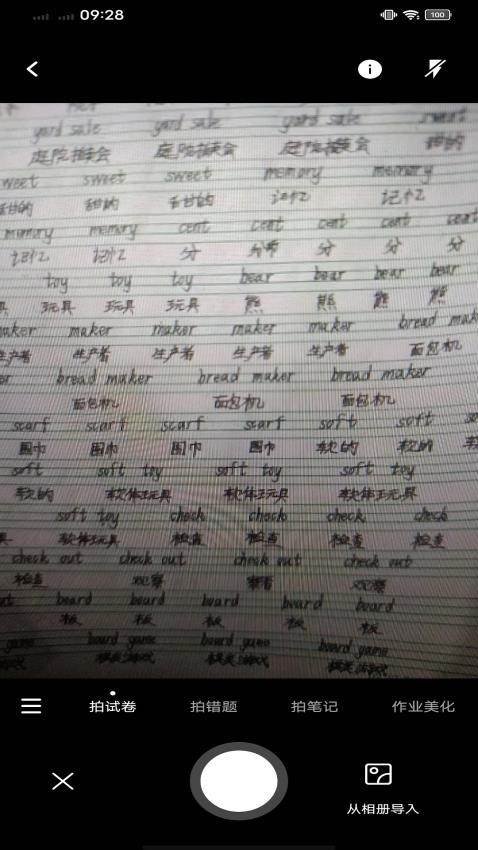 09:28
100
yard sale yard sale yard sale sweet
庭院拍卖会 庭院拍卖会 庭院拍卖会 甜的
sweet sweet sweet memory memory
甜的 甜的 甜的 记忆 记忆
memory memory cent cent cent cent cent
记忆 记忆 分 分币 分 分 分
toy toy toy bear bear bear bear
玩具 玩具 玩具 熊 熊 熊 熊
maker maker maker maker maker bread mak
生产者 生产者 生产者 生产者 生产者 面包机
er bread maker bread maker bread maker
面包机 面包机 面包机
scarf scarf scarf scarf soft soft so
围巾 围巾 围巾 围巾 软的 软的
soft soft toy soft toy soft toy
软的 软体玩具 软体玩具 软体玩具
soft toy check check check check
具 软体玩具 检查 检查 检查 检查
check out check out check out check out
检查 观察 察看 观察
board board board board board
板 板 板 板 板
game board game board game board game
棋类游戏 棋类游戏 棋类游戏
拍试卷 拍错题 拍笔记 作业美化
从相册导入